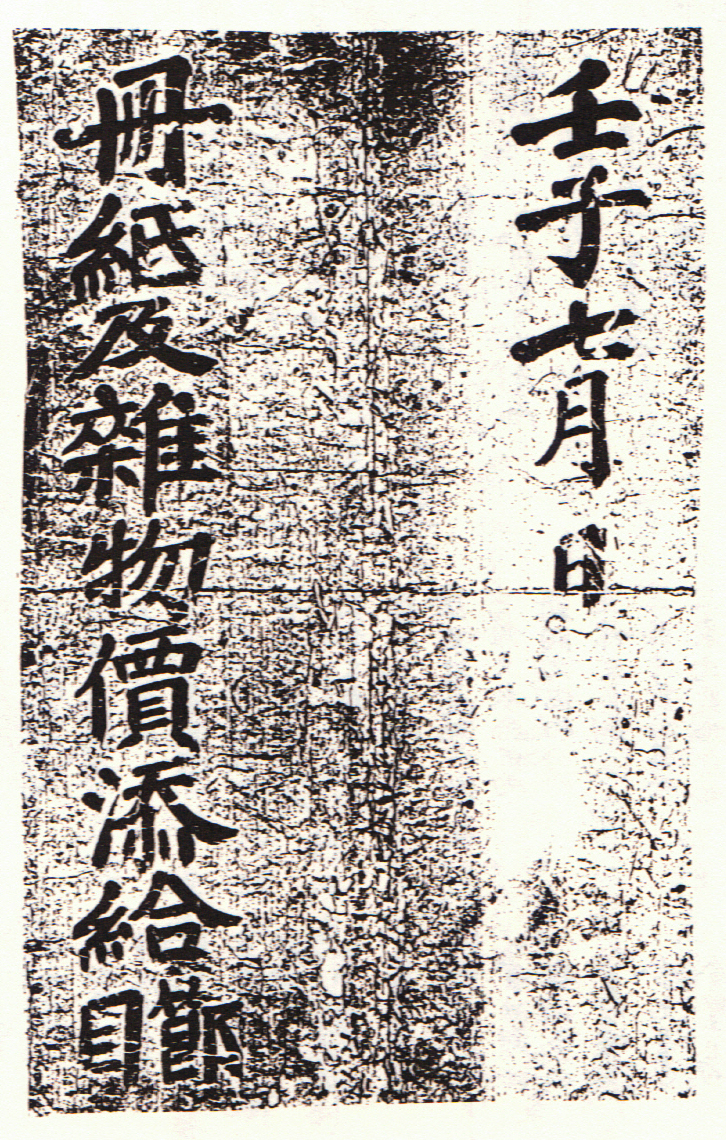 壬子七月 日
冊紙及雜物價添給節目